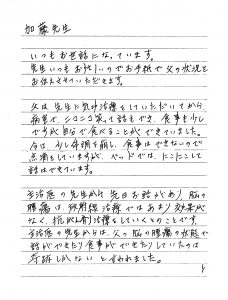 加藤先生
いつもお世話になっています。
先生いつもお忙しいのでお手紙で父の状況を
お伝えさせていただきます。
父は先生に気功治療をしていただいてから
病室で、ニコニコ笑って話もでき、食事も少し
ですが自分で食べることができていました。
今は、少し体調を崩し、食事はできないので
点滴をしていますが、ベッドでは、にこにこして
話はできています。
主治医の先生から先日お話があり、脳の
腫瘍は、放射線治療ではあまり効果が
なく、抗がん剤治療をしていくとのことです。
主治医の先生からは、父の脳の腫瘍の状態で
話ができたり食事ができたりしていたのは
奇跡しかないと言われました。